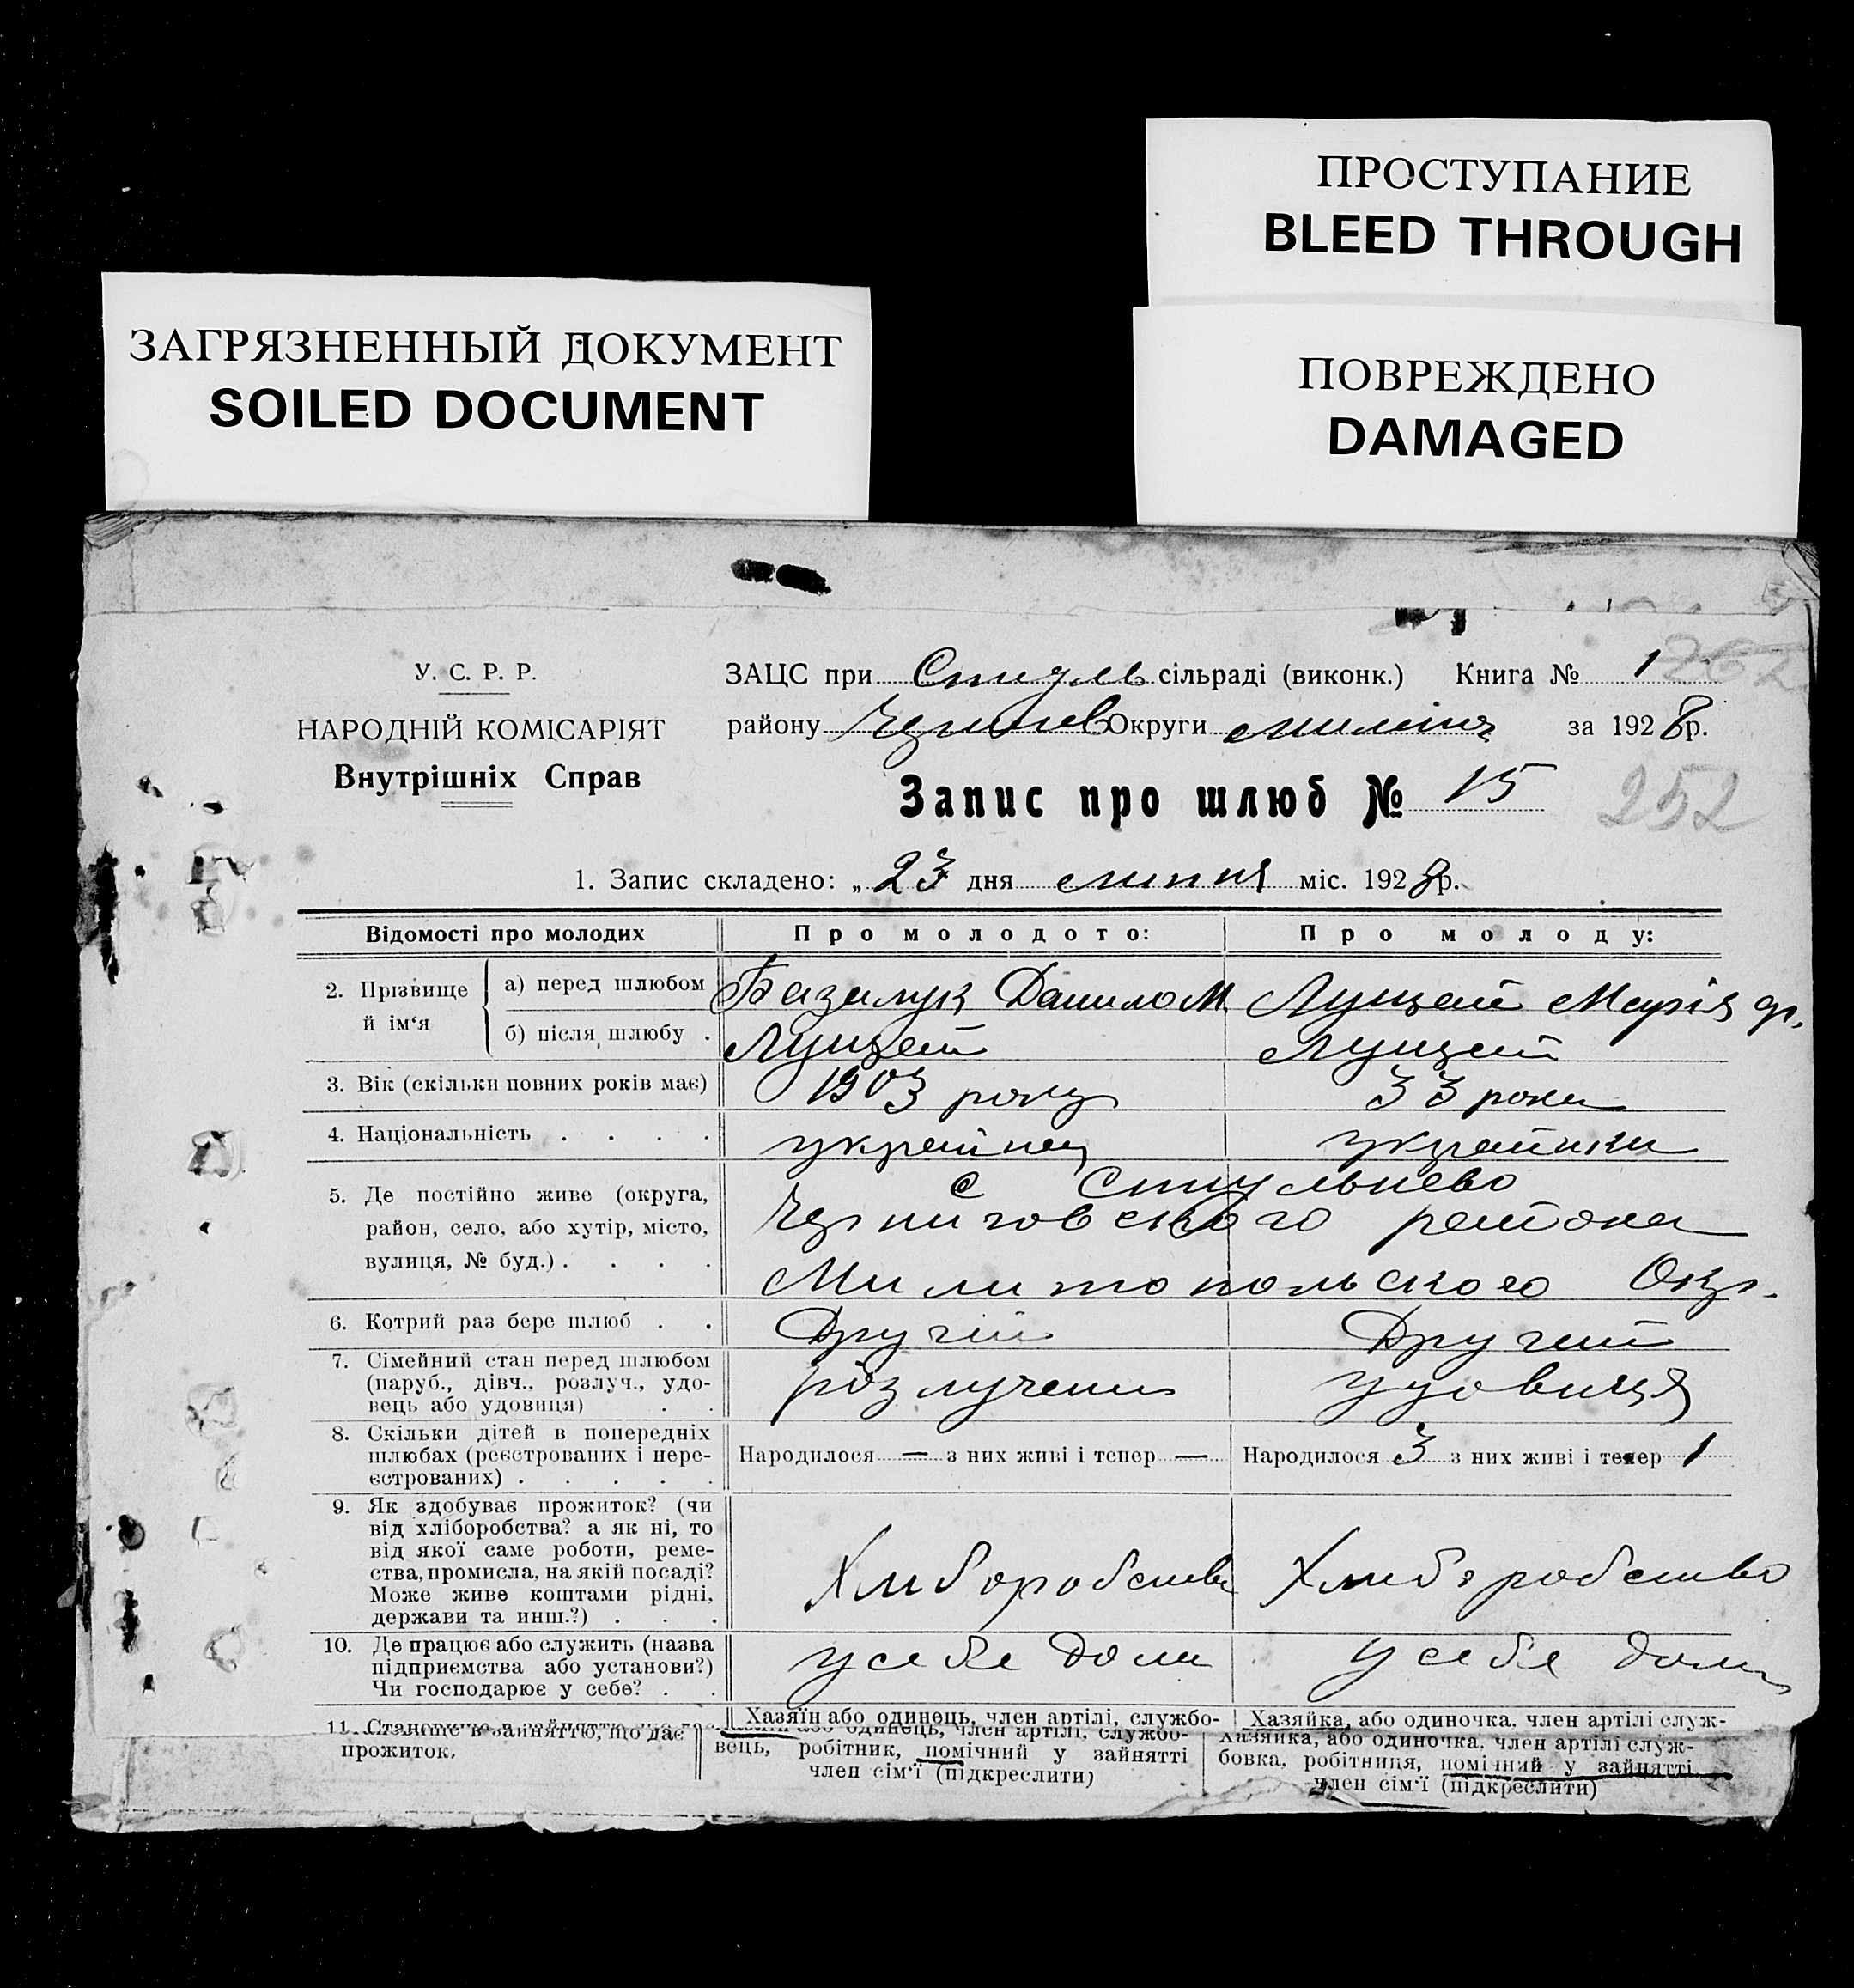 ПРОСТУПАНИЕ
BLEED THROUGH
ЗАГРЯЗНЕННЫЙ ДОКУМЕНТ
SOILED DOCUMENT
ПОВРЕЖДЕНО
DAMAGED
У. С. Р. Р.
НАРОДНІЙ КОМІСАРІЯТ
Внутрішніх Справ
ЗАЦС при Стуль сільраді (виконк.) Книга № 1
району Черниг Округи за 1928 р.
Запис про шлюб № 15
252
1. Запис складено: „ 23 дня липня міс. 1928 р.
Відомості про молодих Про молодого: Про молоду:
2. Прізвище й ім‘я
а) перед шлюбом Базилук Данило М. Луцай Марія
б) після шлюбу . Луцай Луцай
3. Вік (скільки повних років має) 1903 року 33 роки
4. Національність . . . . украйнец украйнка
5. Де постійно живе (округа,
район, село, або хутір, місто,
вулиця, № буд.) . . . .
с Стульнево
Черниговського району
Милитопольского Окр.
6. Котрий раз бере шлюб . . Другий Другий
7. Сімейний стан перед шлюбом
(паруб., дівч., розлуч., удо-
вець або удовиця) . .
розлучени удовиця
8. Скільки дітей в попередніх
шлюбах (реєстрованих і нере-
єстрованих) . . . . .
Народилося — з них живі і тепер — Народилося 3 з них живі і тепер 1
9. Як здобуває прожиток? (чи
від хліборобства? а як ні, то
від якої саме роботи, реме-
ства, промисла, на якій посаді?
Може живе коштами рідні,
держави та инш.?) . . .
Хлиборобство Хлиборобство
10. Де працює або служить (назва
підприємства або установи?)
Чи господарює у себе? . .
у себе дома у себе дома
Хазяїн або одинець, член артілі, службо- Хазяйка, або одиночка, член артілі служ-
11. Становище в зайнятті, що дає
прожиток.
одинець, член артілі, службо-
вець, робітник, помічний у зайнятті
член сім‘ї (підкреслити)
Хазяйка, або одиночка, член артілі служ-
бовка, робітниця, помічний у зайнятті
член сім‘ї (підкреслити)